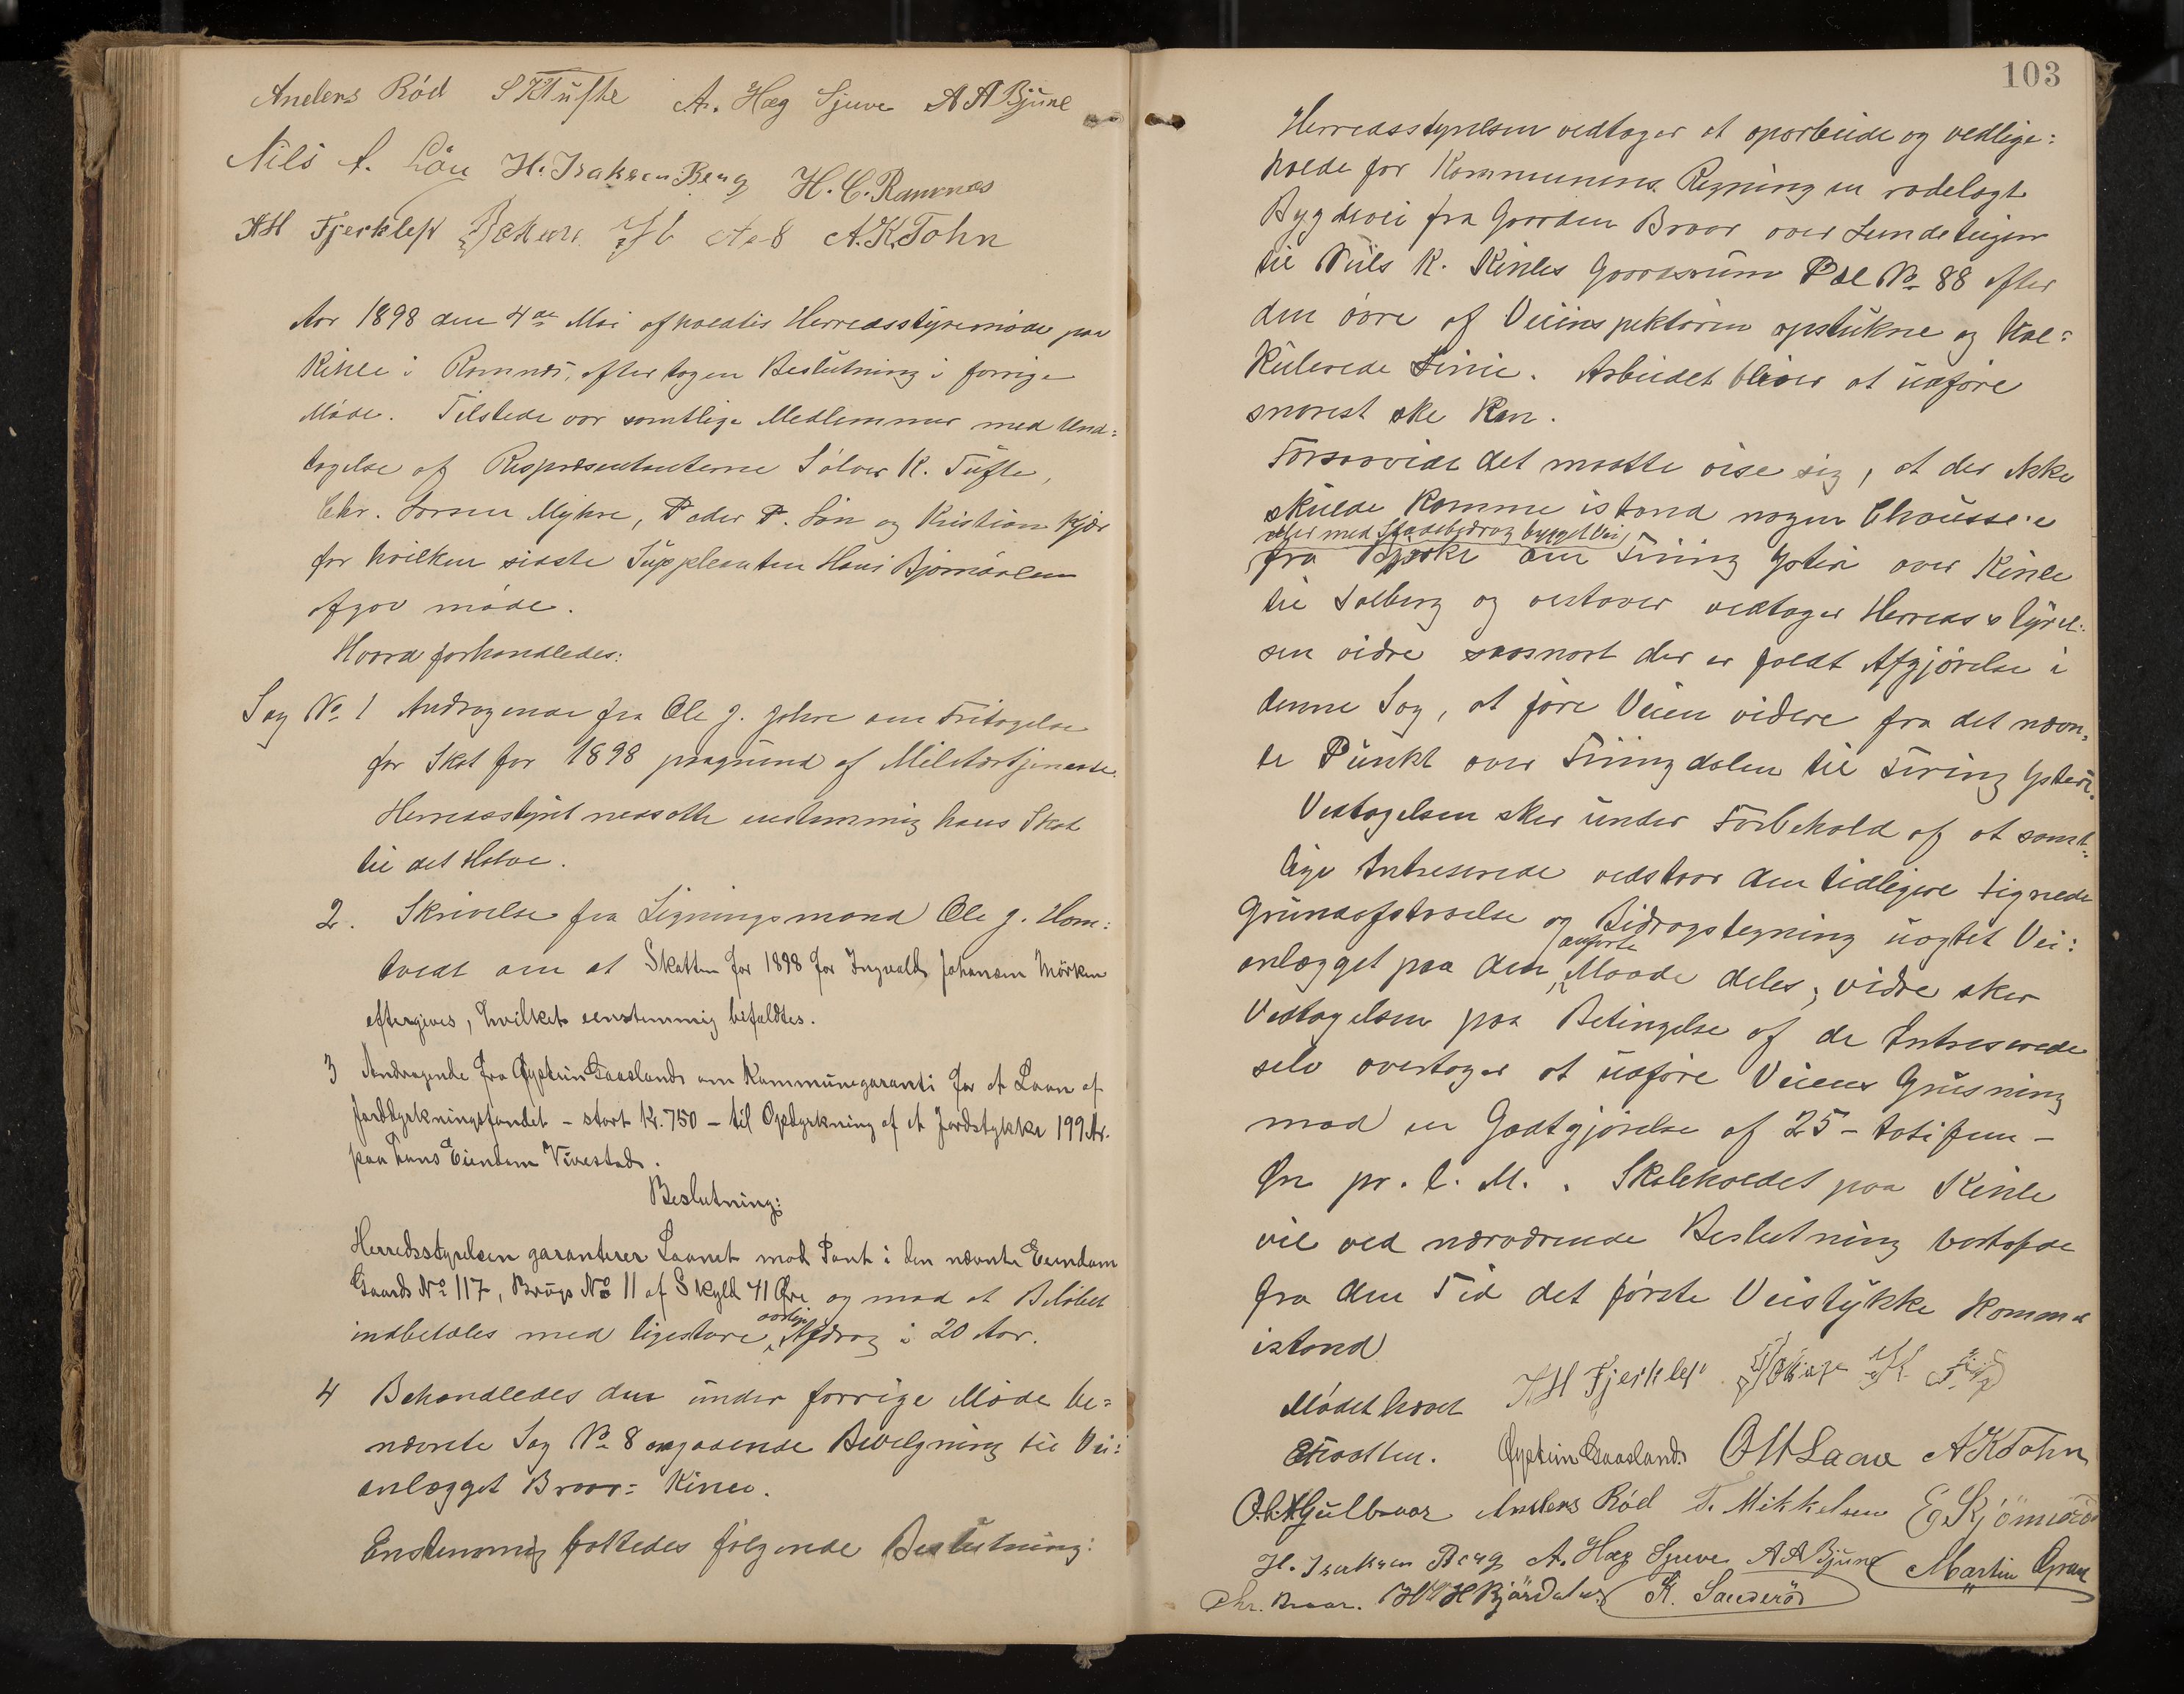 Anders Röd S K Tufte A. Hæg Sjuve A A Bjune
Nils A. Lön H. Isaksen Berg H. C. Ramnæs
A.K. Tohn
Aar 1898 den 4de Mai afholdtes Herredsstyremöde paa
Kihle i Ramnæs, efter tagen Beslutning i forrige
Möde. Tilstede var samtlige Medlemmer med Und=
tagelse af Repræsentanterne Sölver K. Tufte,
Chr. Larsen Myhre, Peder P. Lön og Kristian Kjær
for hvilken sidste Suppleanten Hans Bjørndalen
afgav möde.
Hvorda forhandledes:
Sag No 1 Andragende fra Ole J. Johre om Fritagelse
for Skat for 1898 paagrund af Militærtjeneste.
Herredsstyret nedsatte enstemmig hans Skat
til det Halve.
2. Skrivelse fra Ligningsmand Ole J. Hom=
tvedt om at Skatten for 1898 for Ingvald Johansen Mörken
eftergives, hvilket eenstemmig bifaldtes.
3 Andragende fra Øystein Gaasland om Kommunegaranti for et Laan af
Jorddyrkningsfondet - stort Kr. 750 - til Opdyrkning af et Jordstykke 199 Ar.
paa hans Eiendom Vivestad.
Beslutning:
Herredsstyrelsen garanterer Laanet mod Pant i den nævnte Eiendom
Gaards No 117, Brugs No 11 af Skyld 41 Øre og mod at Belöbet
indbetales med ligestore aarlige Afdrag i 20 Aar.
4 Behandledes den under forrige Möde be=
nævnte Sag No 8 angaaende Bevilgning til Vei=
anlægget Braar= Kihle.
Enstemmig fattedes fölgende Beslutning:
103
Herredsstyrelsen vedtager at oparbeide og vedlige=
holde for Kommunens Regning en rodelagt
Bygdevei fra Gaarden Braar over Lundeteigen
til Niils K. Kihles Gaardsrum Pæl No 88 efter
den övre af Veiinspektören opstukne og kal=
kulerede Linie. Arbeidet bliver at udföre
snarest ske kan.
Forsaavidt det maatte vise sig, at der ikke
skulde komme istand nogen Chaussee
eller med Stadsbidrag bygget Vei
fra om Firing Ysteri over Kihle
til Solberg og vestover vedtager Herredsstyrel=
sen vidre saasnart der er faldt Afgjörelse i
denne Sag, at före Veien videre fra det nævn=
te Punkt over Firingdalen til Firing Ysteri.
Vedtagelsen sker under Forbehold af at samt=
lige Intreserede vedstaar den tidligere tignede
Grundafstaaelse og Bidragstegning uagtet Vei=
anlægget paa den anførte Maade deles; vidre sker
Vedtagelsen paa Betingelse af de Intreserede
selv overtager at udföre Veiens Grusning
mod en Godtgjörelse af 25 - totifem -
Øre pr. l. M. . Skoleholdet paa Kihle
vil ved nærværende Beslutning bortofde
fra den Tid det förste Veistykke komme
istand
Mödet hævet
Øystein Gaasland. A K Tohn
Gulbraar Anders Röd T. Mikkelsen
H. Isaksen Berg A. Hæg Sjuve A A Bjune Martin Gran
Chr. Braar. K. Sanderöd